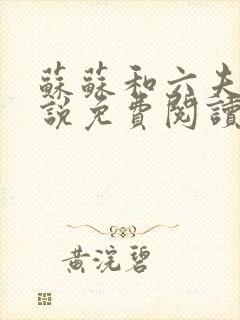 蘇蘇和六夫
說免費閱讀
黃浣碧